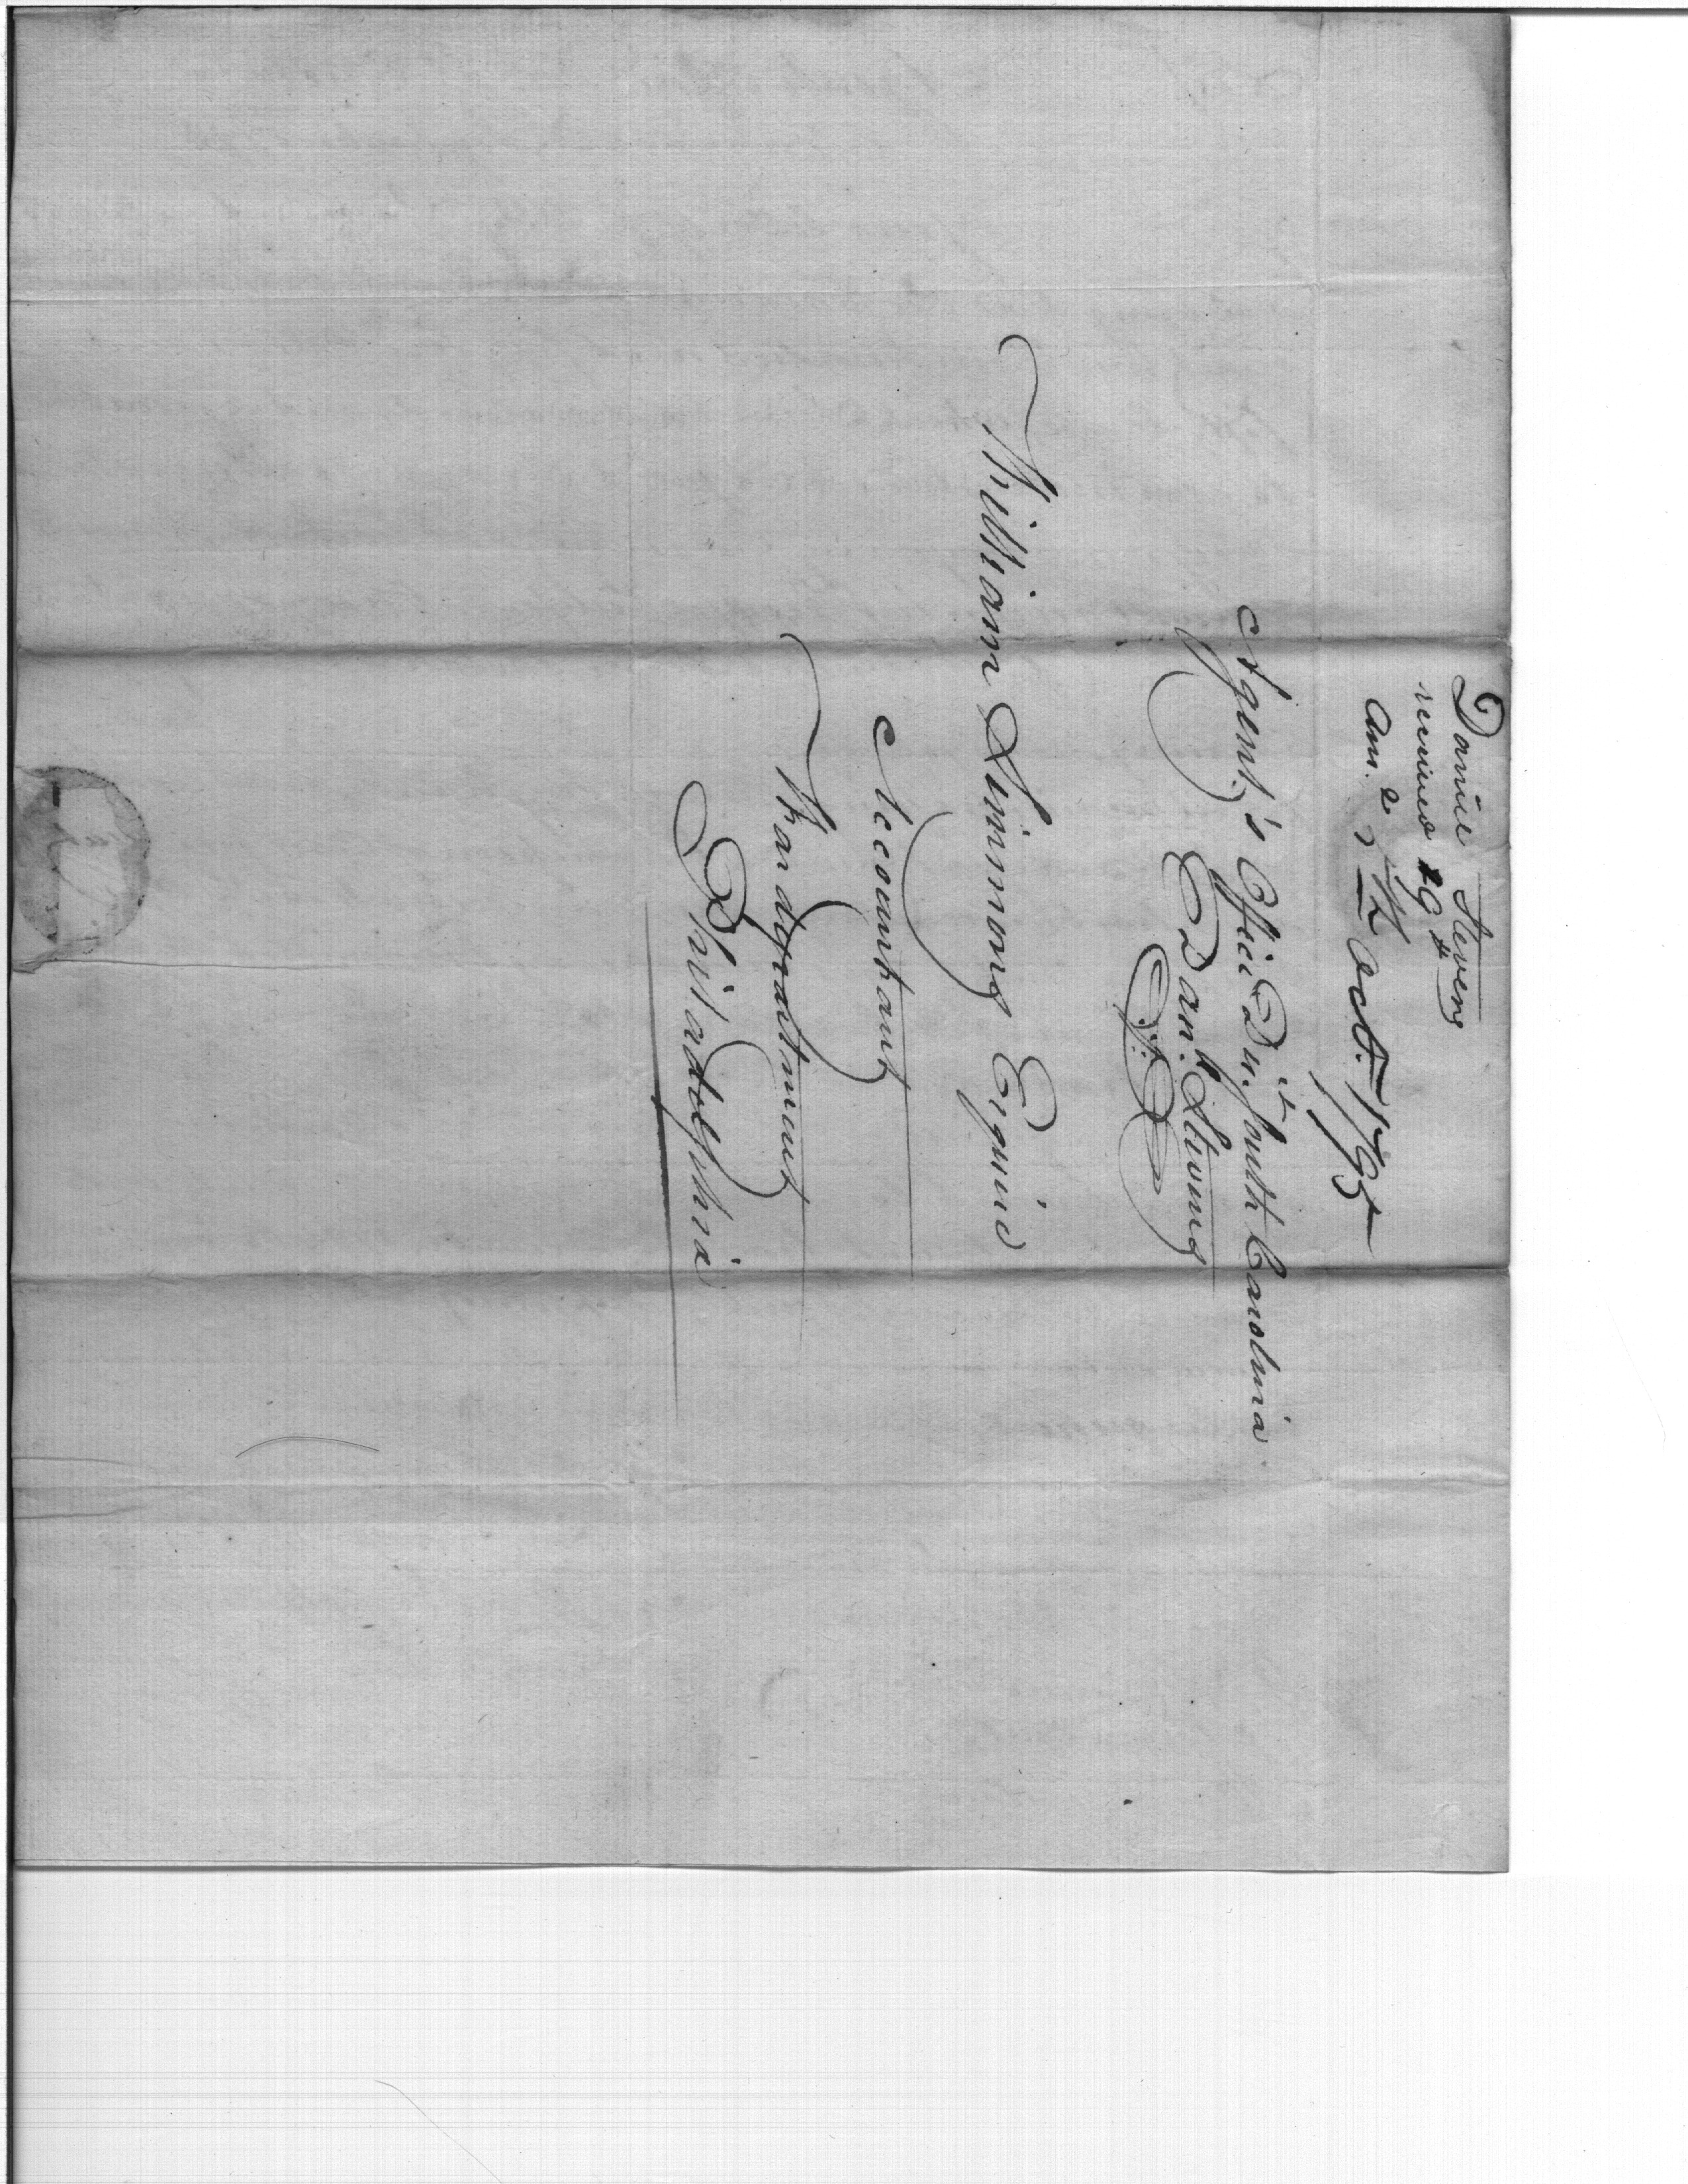 Daniel Stevens
received 29th
Ans.d 7th Oct. 1795
Agent's Office Dis.t South Carolina
Dan.l Stevens
William Simmons Esquire
Accountant
War department
Philadelphia